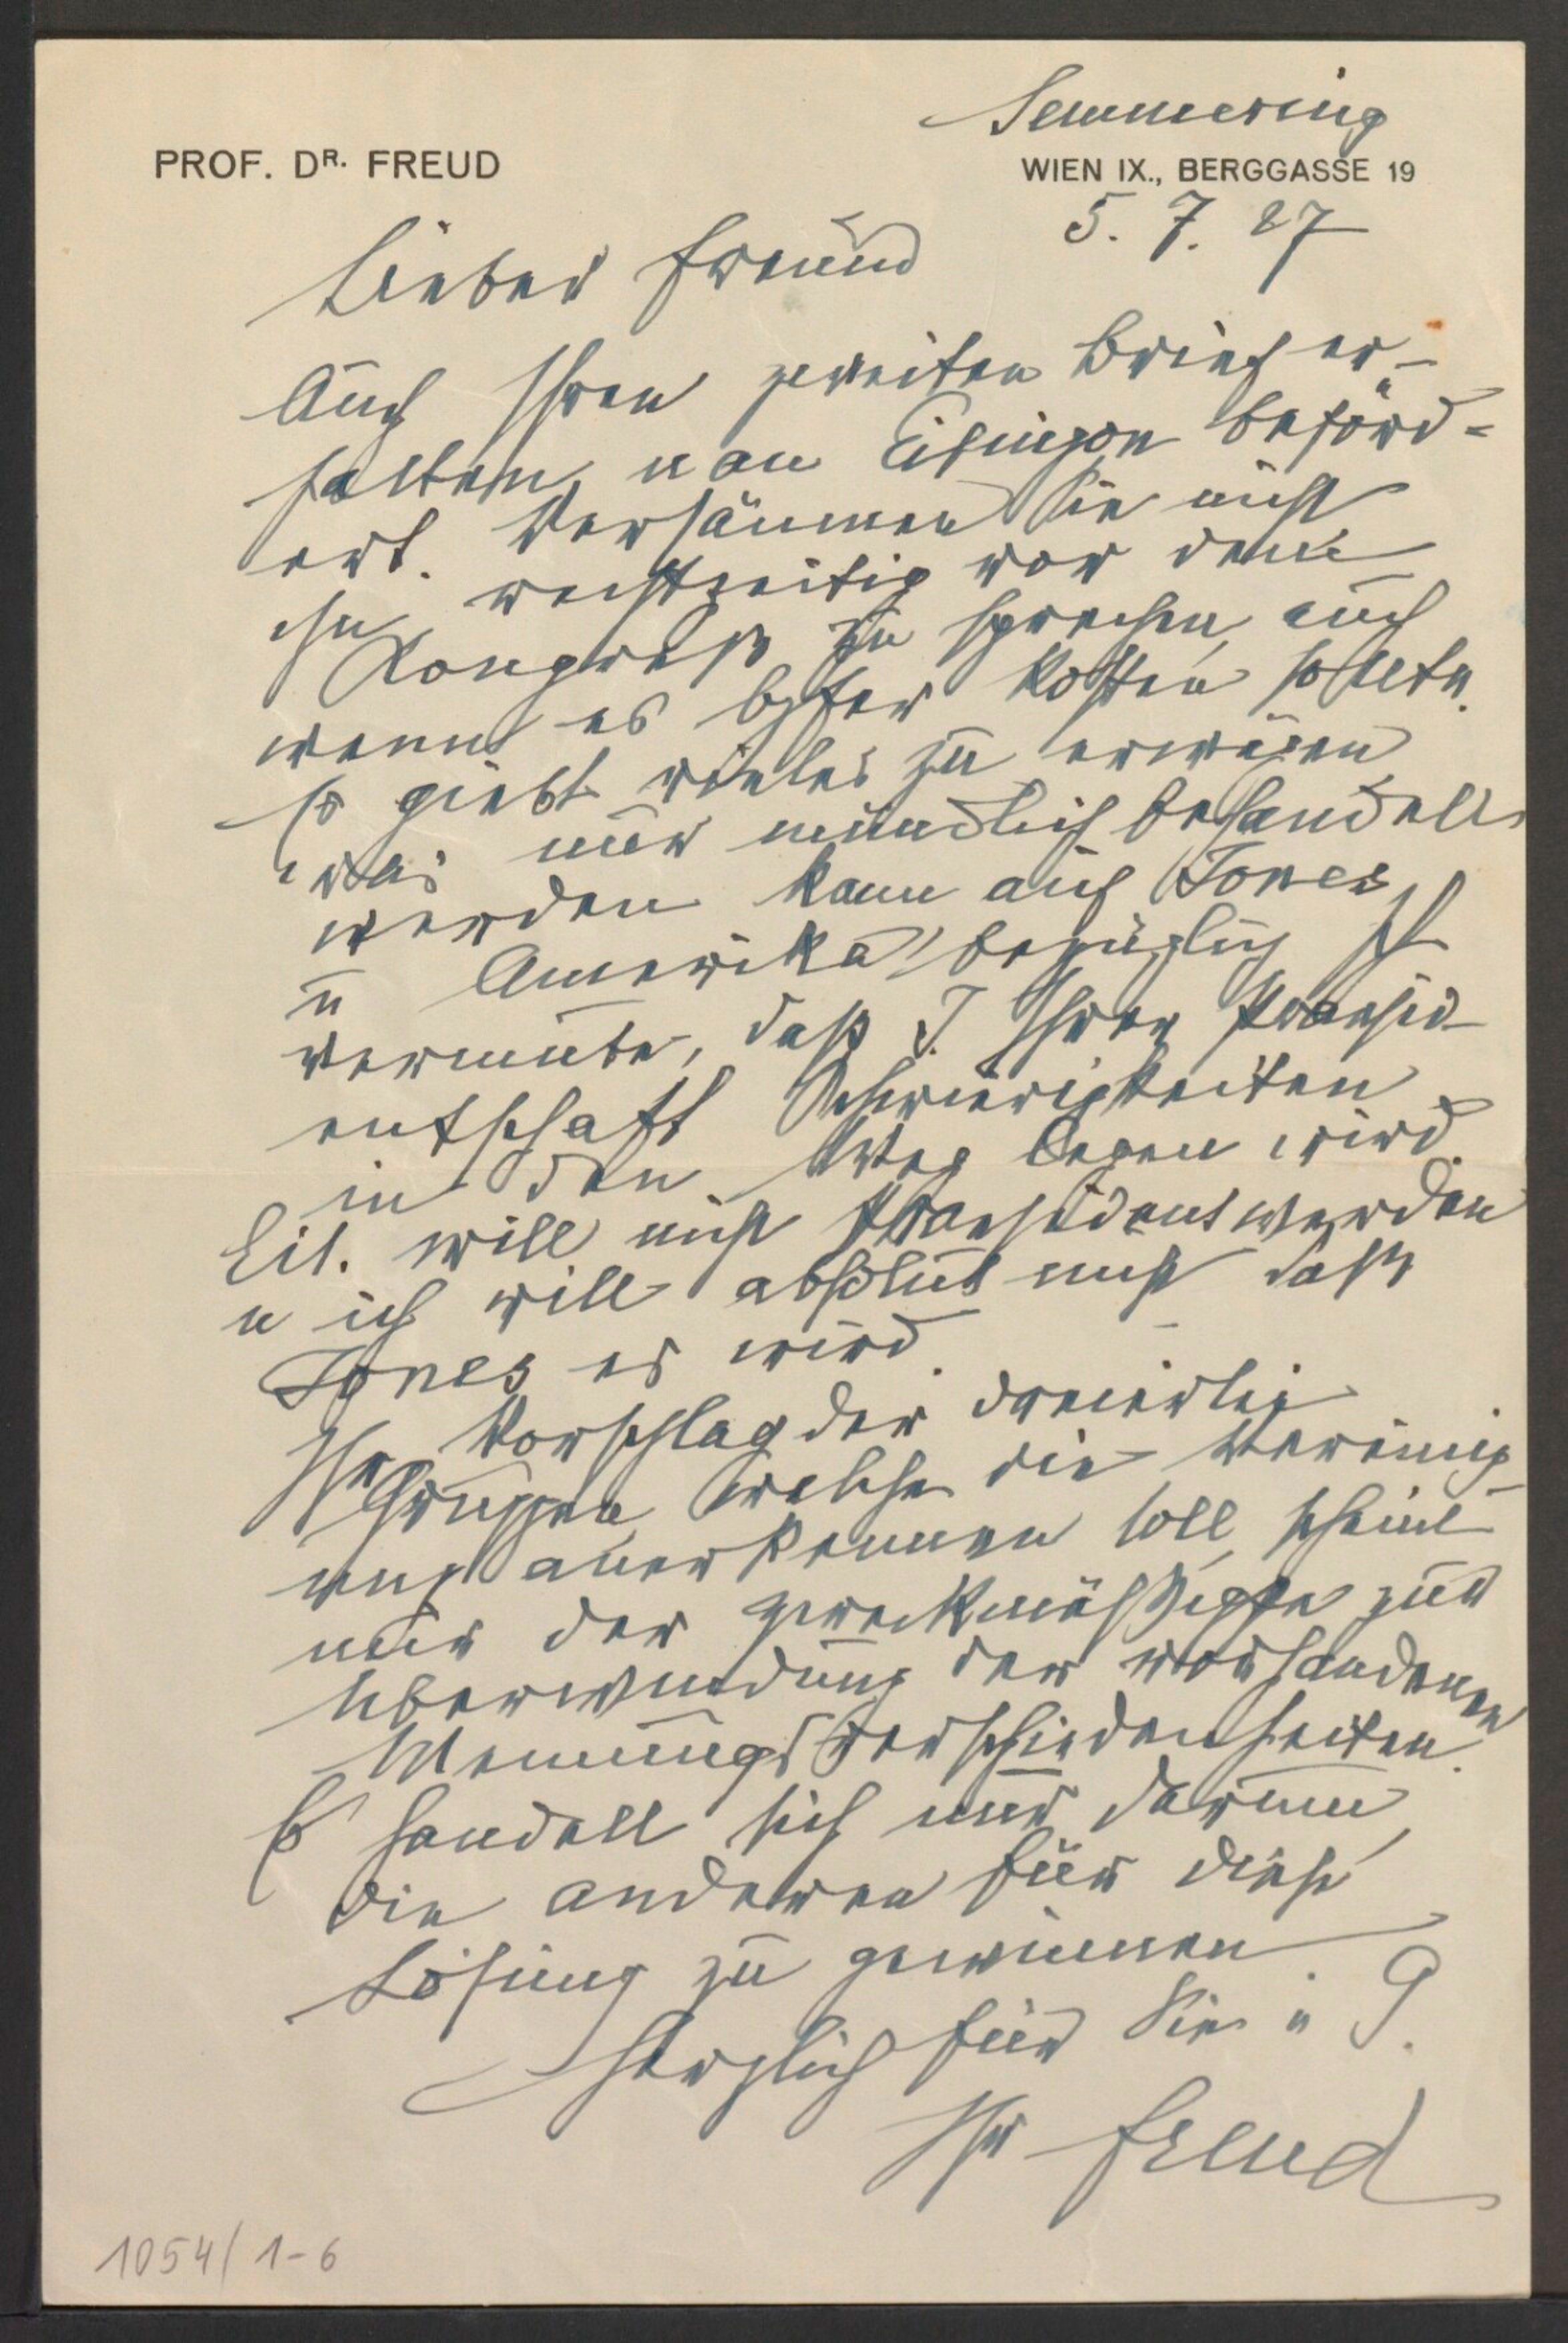 Semmering
PROF. DR. FREUD
WIEN IX., BERGGASSE 19
5. 7. 27
Lieber Freund
Auch Ihren zweiten Brief er-
halten, an Eitingon beförd-
ert. Versäumen Sie nicht
ihn rechtzeitig vor dem
Kongreß zu sprechen, auch
wenn es Opfer kosten sollte.
Es giebt vieles zu erwägen
was nur mündlich behandelt
werden kann auf Jones
u Amerika bezüglich. Ich
vermute, daß J. Ihrer Praesid-
entschaft Schwierigkeiten
in den Weg legen wird.
Eit. will nicht Praesident werden
u ich will absolut nicht daß
Jones es wird.
Ihr Vorschlag der dreierlei
Gruppen, welche die Vereinig-
ung anerkennen soll, scheint
mir der zweckmäßigste zur
Überwindung der vorhandenen
Meinungsverschiedenheiten.
Es handelt sich nur darum,
die anderen für diese
Lösung zu gewinnen.
Herzlich für Sie u G.
Ihr Freud
1054/1-6